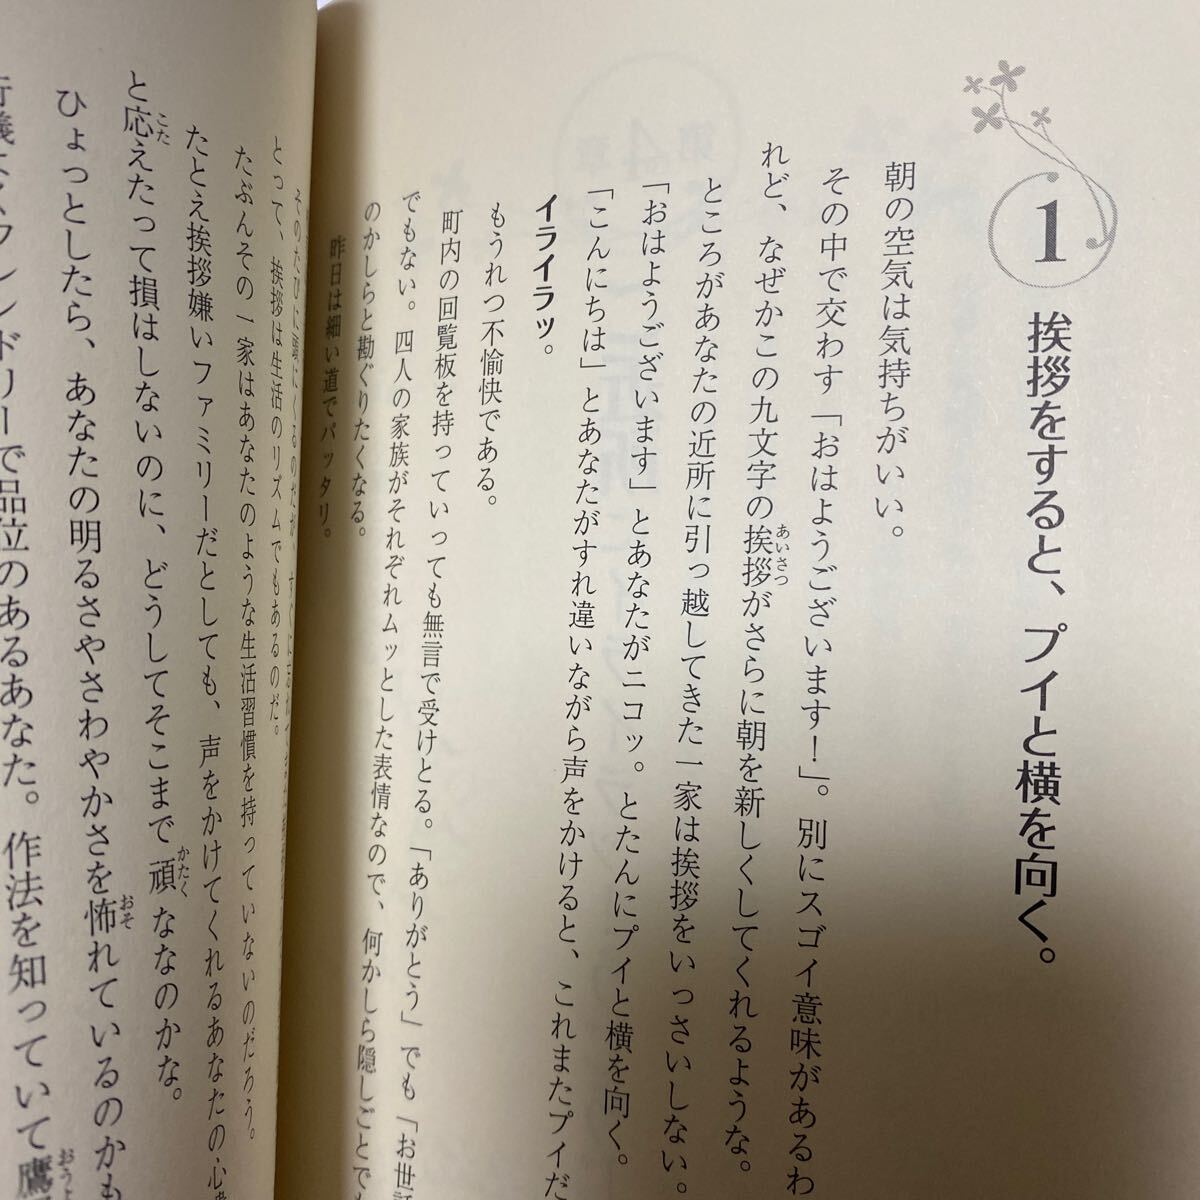 1 挨拶をすると、プイと横を向く。
朝の空気は気持ちがいい。
その中で交わす「おはようございます！」。別にスゴイ意味があるわ
れど、なぜかこの九文字の挨拶がさらに朝を新しくしてくれるような。
ところがあなたの近所に引っ越してきた一家は挨拶をいっさいしない。
「おはようございます」とあなたがニコッ。とたんにプイと横を向く。
「こんにちは」とあなたがすれ違いながら声をかけると、これまたプイだ
イライラッ。
もうれつ不愉快である。
町内の回覧板を持っていっても無言で受けとる。「ありがとう」でも「お世話
でもない。四人の家族がそれぞれムッとした表情なので、何かしら隠しごとでも
のかしらと勘ぐりたくなる。
昨日は細い道でバッタリ。
そのたびに頭にくるのだが、すぐに
とって、挨拶は生活のリズムでもあるのだ。
たぶんその一家はあなたのような生活習慣を持っていないのだろう。
たとえ挨拶嫌いファミリーだとしても、声をかけてくれるあなたの心
と応えたって損はしないのに、どうしてそこまで頑ななのかな。
ひょっとしたら、あなたの明るさやさわやかさを怖れているのかも
フレンドリーで品位のあるあなた。作法を知っていて